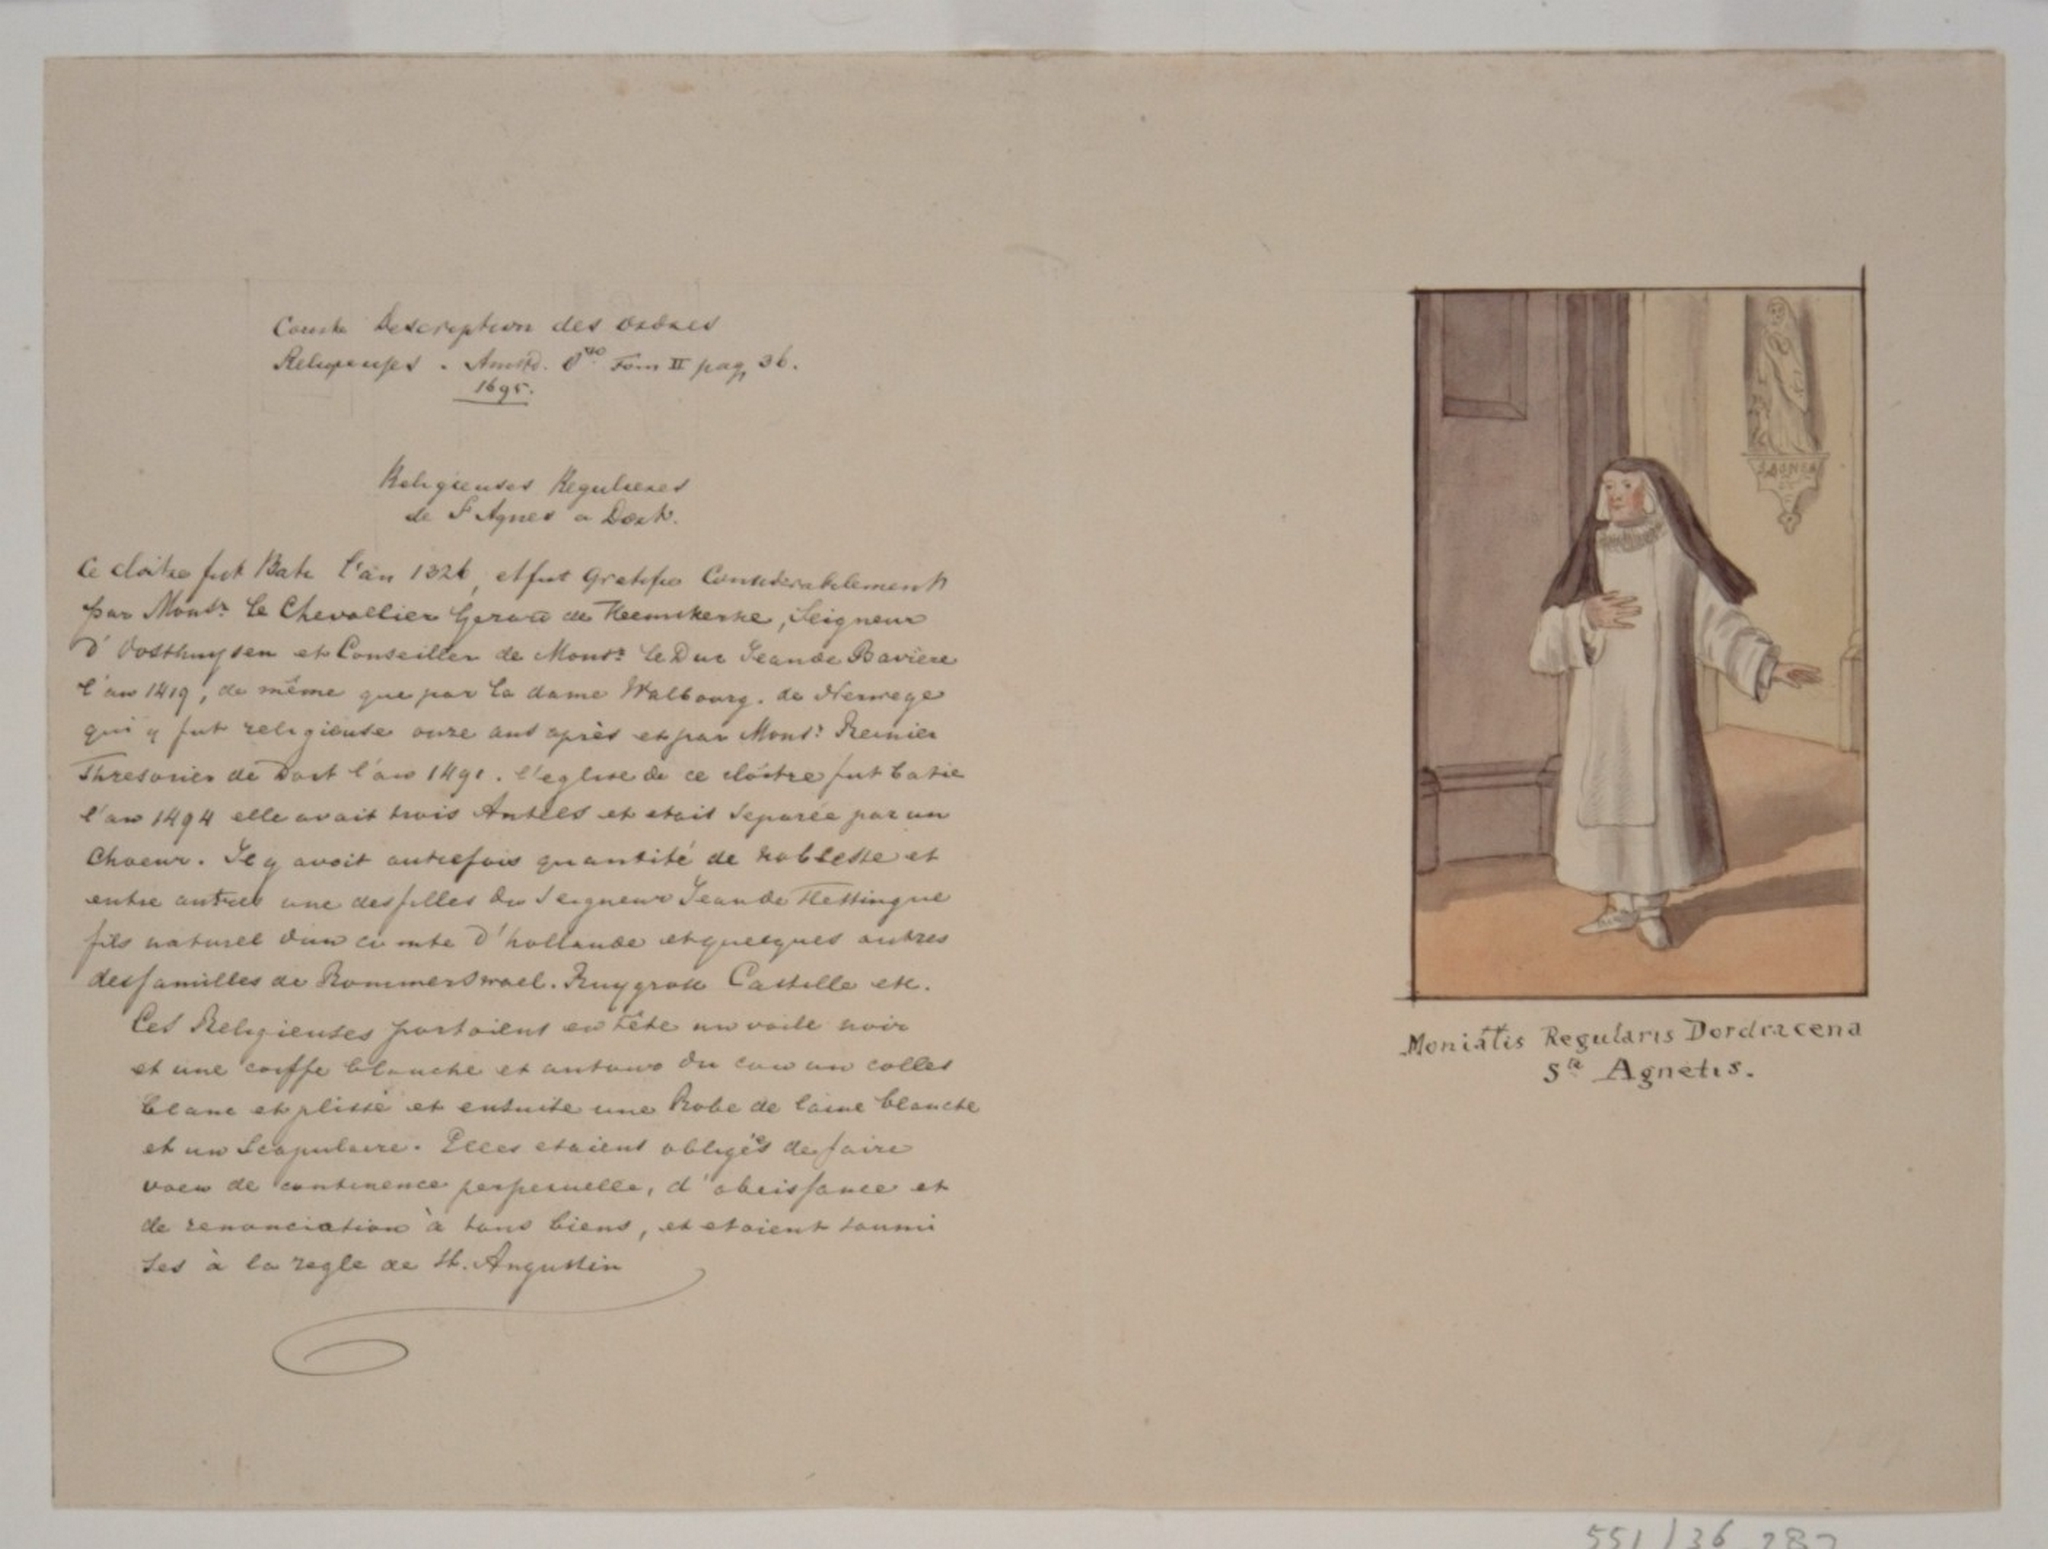 Courte Description des Ordres
Religieuses. Amstd. 8vo Tom II pag 36.
1695.
Religieuses Regulieres
de St Agnes a Dort.
Ce cloitre fut Bati l'an 1326, et fut Gratifie Considerablement
par Monsr. le Chevallier Gerard de Heemskerke, Seigneur
d'Oosthuysen et Conseiller de Monsr. le Duc Jean de Baviere
l'an 1419, de même que par la dame Walbourg. de Nerwege
qui y fut religieuse onze ans après et par Monsr. Reinier
Thresorier de Dort l'an 1491. l'eglise de ce cloitre fut batie
l'an 1494 elle avait trois Autels et etait Separée par un
Choeur. Il y avoit autrefois quantité de noblesse et
entre autres une des filles du Seigneur Jean de Hettingue
fils naturel d'un comte d'hollande et quelques autres
des familles de Rommerswael. Ruygrok Castille etc.
Ces Religieuses portoient en tête un voile noir
et une coiffe blanche et autour du cou un collet
blanc et plissé et ensuite une Robe de laine blanche
et un Scapulaire. Elles etoient obligés de faire
voeu de continence perpetuelle, d'obeissance et
de renonciation à tous biens, et etoient soumi
ses à la regle de St. Augustin
S AGNEA
Monialis Regularis Dordracena
Stæ Agnetis.
551/36 282